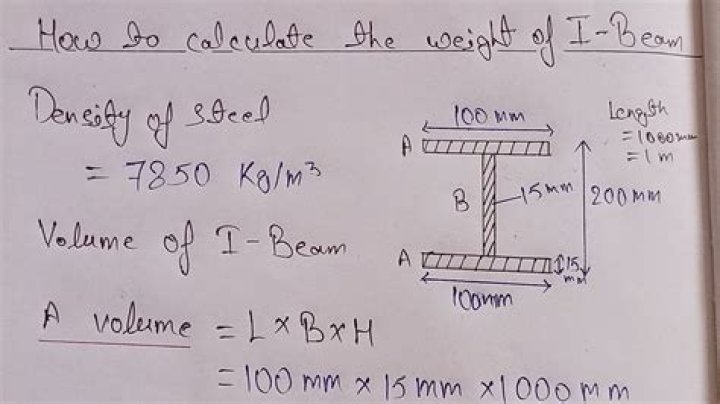 How to calculate the weight of I-Beam
Density of steel
= 7850 Kg/m³
Volume of I-Beam
A volume = L × B × H
= 100 mm × 15 mm × 1000 mm
100 mm
A
B
15 mm
200 mm
A
15
mm
100mm
Length
= 1000 mm
= 1 m